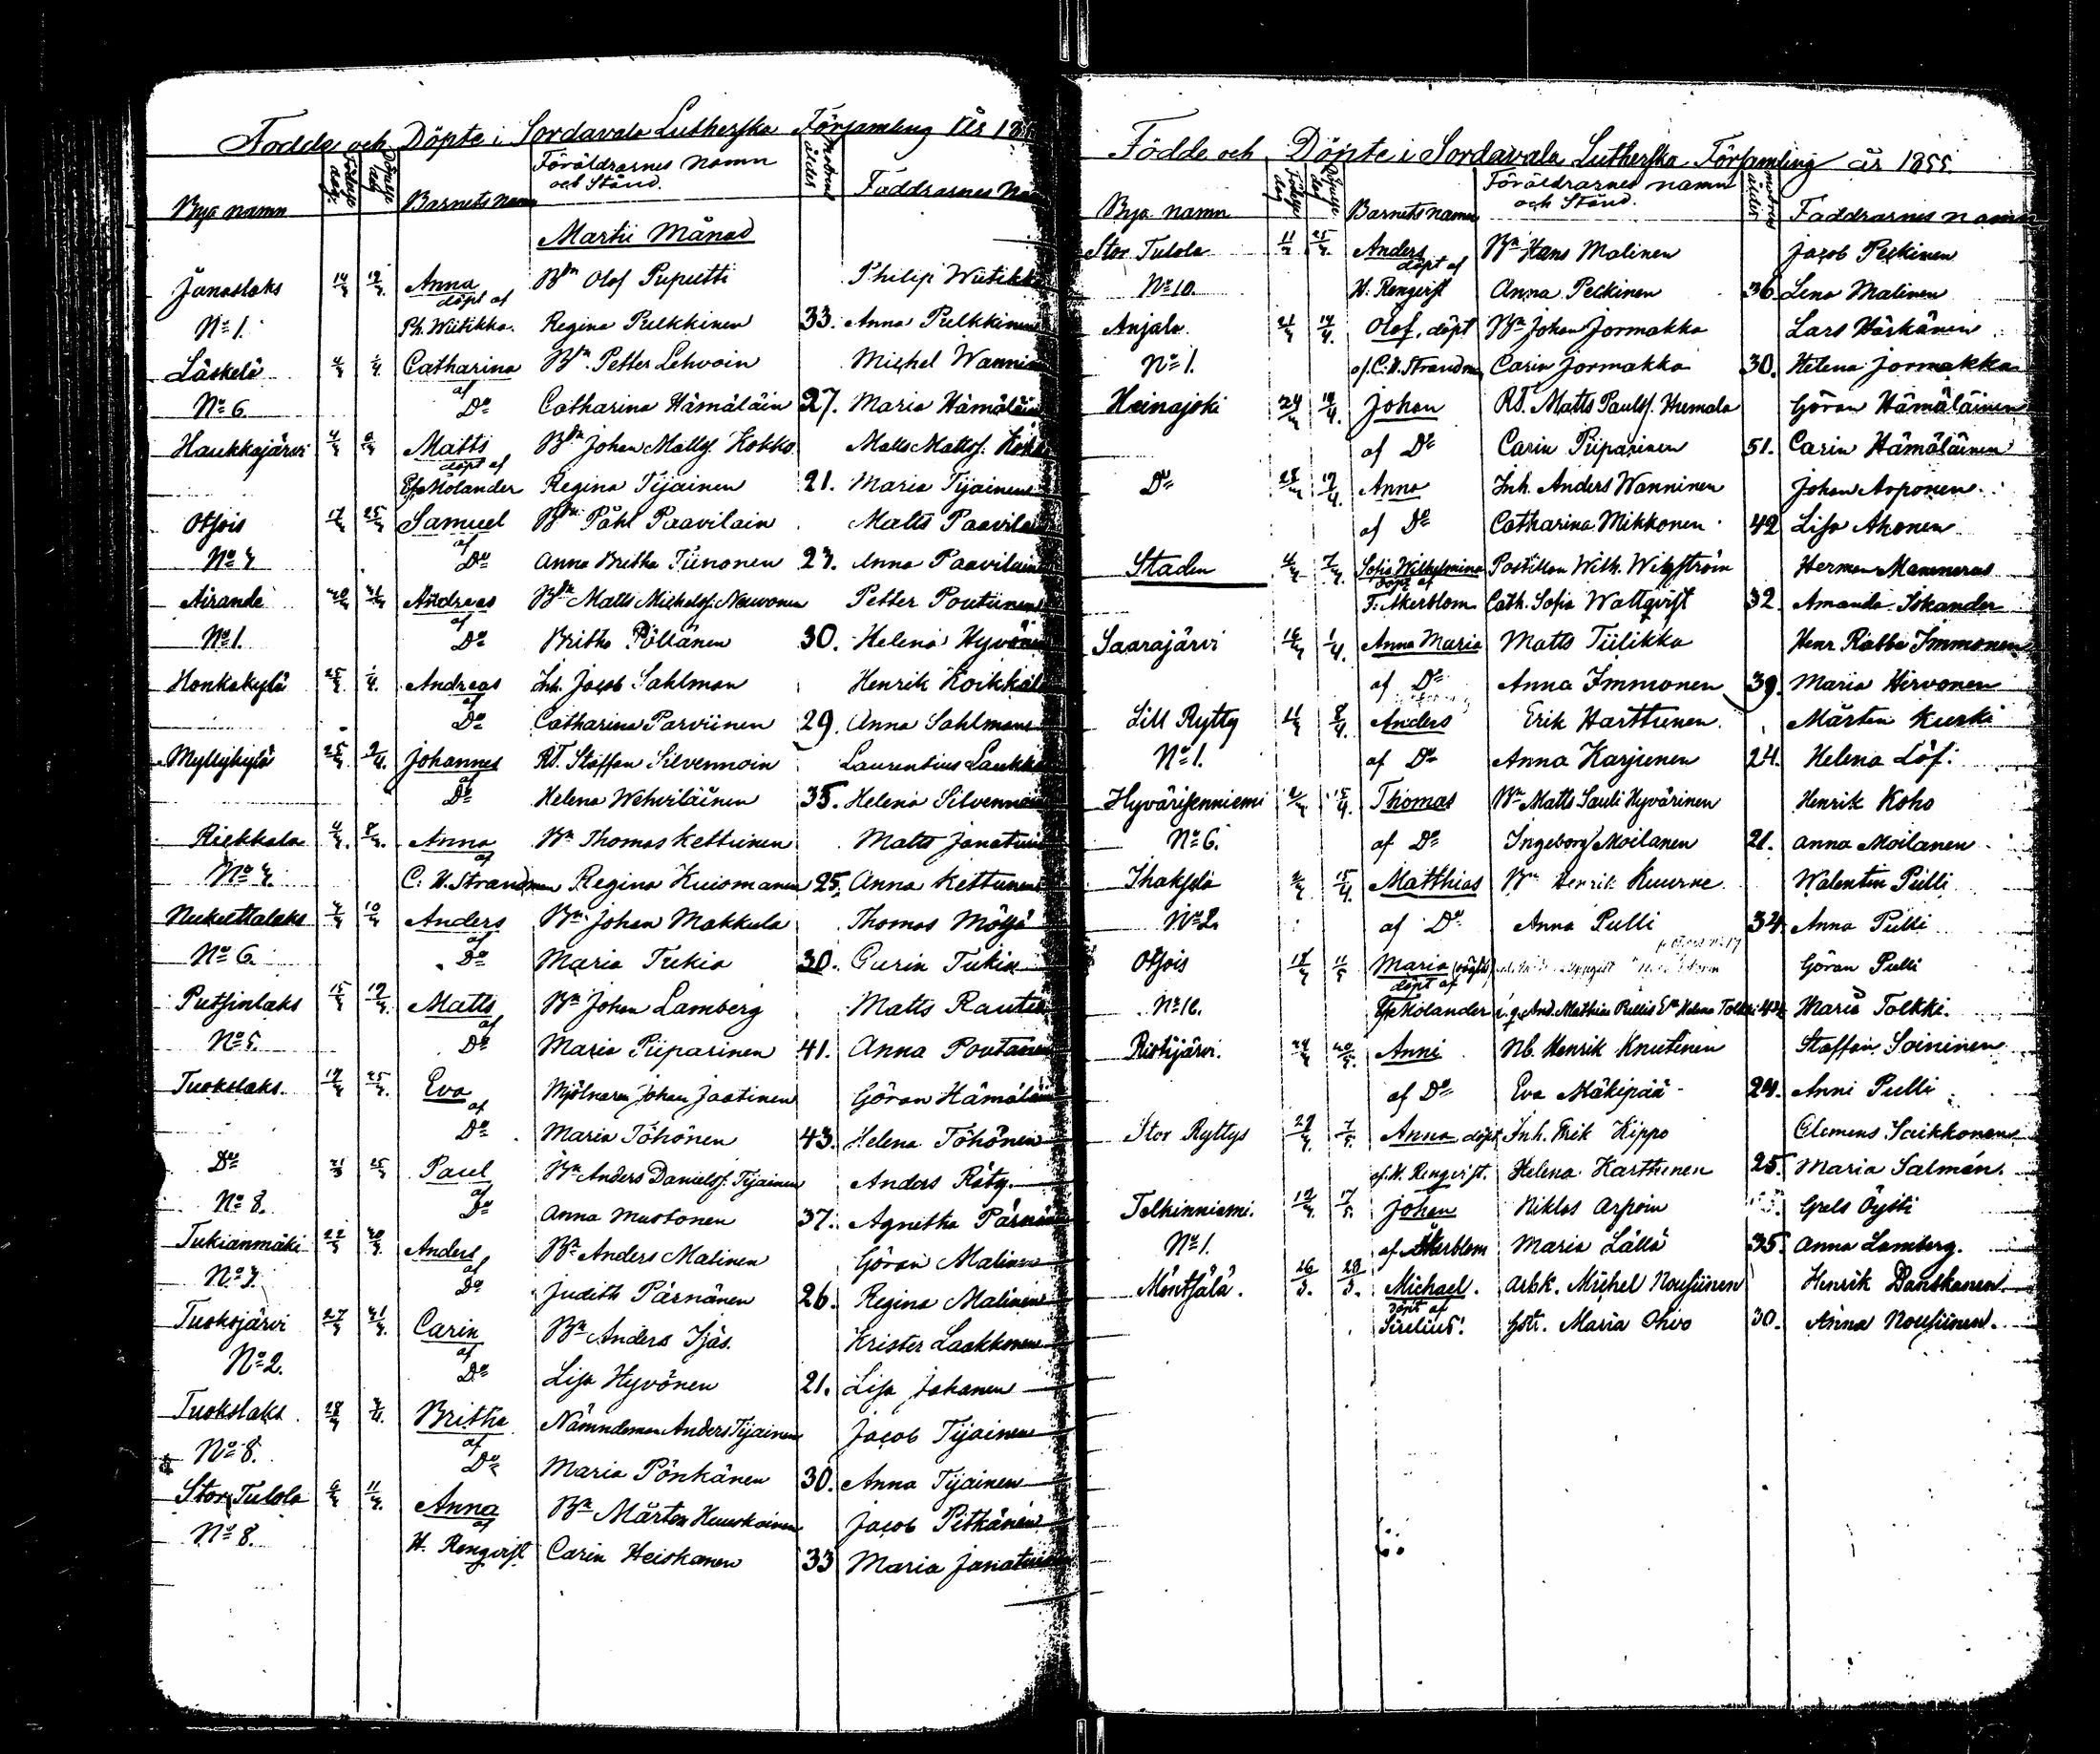 Födde och Döpte i Sordavala Lutherska Församling År 18
Bya namn Födelse dag Döpelse dag Barnets namn Föräldrarnes namn och Stånd. modrens ålder Faddrarnes Na
Martii Månad
Janaslaks 14/3 19/3 Anna Bdn Olof Puputti Philip Wiitikka
döpt af
No 1. Ph. Wiitikka. Regina Pulkkinen 33. Anna Pulkkinen
Läskelä 4/3 1/4 Catharina Bdn Petter Lehvoin Michel Wannin
No 6. af Do Catharina Hämäläin 27. Maria Hämäläin
Haukkajärvi Matts Bdn Johan Matts. Kokko Matts Matts. Kokk
döpt af
Ef. Molander Regina Tijainen 21. Maria Tijainen
Otsois 17/3 25/3 Samuel Bdn Påhl Paavilain Matts Paavila
af Do Anna Britha Tiinonen 23. Anna Paavilain
Airande Andreas Bdn Matts Michelss. Nouvonen Petter Poutiainen
No 1. af Do Britha Pöllänen 30. Helena Hyvönen
Honkakylä 25/3 1/4 Andreas Inh. Jacob Sahlman Henrik Koikkal
af Do Catharina Parviinen 29. Anna Sahlman
Myllykylä 25/3 2/4 Johannes RT. Staffan Silvennoin Laurentius Laukka
af Do Helena Wehviläinen 35. Helena Silvennoin
Riekkala Anna Bn Thomas Kettunen Matts Janatuin
af C. U. Strandman Regina Kuiomanen 25. Anna Kettunen
Nukuttalaks 10/3 Anders Bn Johan Makkula Thomas Mörsä
No 6. af Do Maria Tukia 30. Carin Tukia
Putsinlaks 15/3 19/3 Matts Bn Johan Lamberg Matts Rautia
No 5. af Do Maria Piiparinen 41. Anna Poutanen
Tuokslaks. 19/3 25/3 Eva Mjölnaren Johan Jaatinen Göran Hämäläin
af Do Maria Töhönen 43. Helena Töhönen
Do 21/3 25/3 Paul Bn Anders Danielss. Tijainen Anders Räty
No 8. af Do Anna Mustonen 37. Agnetha Pärnän
Tukianmäki 22/3 30/3 Anders Bn Anders Malinen Göran Malinen
No 3. af Do Judith Pärnänen 26. Regina Malinen
Tuoksjärvi 27/3 31/3 Carin Bn Anders Ijäs. Krister Laakkonen
No 2. af Do Lisa Hyvönen 21. Lisa Johanen
Tuokslaks 28/3 Britha Nämndeman Anders Tijainen Jacob Tijainen
No 8. af Do Maria Pönkänen 30. Anna Tijainen
Stor Tulola 6/3 11/3 Anna Bn Mårten Huuskoinen Jacob Pitkänen
No 8. af H. Rengvist Carin Heiskanen 33 Maria Janatuinen
Födde och Döpte i Sordavala Lutherska Församling år 1855.
Bya namn Födelse dag Döpelse dag Barnets namn Föräldrarnes namn och Stånd. modrens ålder Faddrarnes namn
Stor Tulola 11/3 25/3 Anders Bn Hans Malinen Jacob Peckinen
döpt af
No 10. H. Rengvist Anna Peckinen 36 Lena Malinen
Anjala 21/3 14/4 Olof, döpt Bn Johan Jormakka Lars Härkönen
No 1. af. C. U. Strandman Carin Jormakka 30. Helena Jormakka
Heinajoki 24/3 14/4 Johan RT. Matts Paulss. Humala Göran Hämäläinen
af Do Carin Piiparinen 51. Carin Hämäläinen
Do 28/3 19/4 Anna Inh. Anders Wanninen Johan Asponen
af Do Catharina Mikkonen 42 Lisa Ahonen
Staden Sofia Wilhelmina Postillon Wilh. Wikström Herman Manneras
döpt af
F. Åkerblom Cath. Sofia Wallqvist 32. Amanda Iskander
Saarajärvi 16/3 1/4 Anna Maria Matts Tiilikka Henr Rabbe Immonen
af Do Anna Immonen 39. Maria Hirvonen
Lill Rytty 11/3 8/4 Anders Erik Harttunen Mårten Kurki
No 1. af Do Anna Karjunen 24. Helena Löf.
Hyvärisenniemi 2/3 15/4 Thomas Bn Matts Sauli Hyvärinen Henrik Koho
No 6. af Do Ingeborg Moilanen 21. Anna Moilanen
Ihaksela 15/4 Matthias Bn Henrik Kuurne Walentin Pulli
No 2. af Do Anna Pulli 34. Anna Pulli
Otsois 18/3 11/5 Maria Göran Pulli
döpt af
No 16. Ef. Molander And. Mathias Pullis Enka Helena Tolkki Maria Tolkki.
Ristijärvi. 24/3 20/5 Anni Nb. Henrik Knutinen Staffan Soininen
af Do Eva Mäkipää 24. Anni Pulli
Stor Ryttys 29/3 7/5 Anna döpt Inh. Erik Kippo Clemens Saikkonen
af. H. Rengvist. Helena Karttunen 25. Maria Salmén.
Telkinniemi. 19/3 17/5 Johan Niklas Arpoin Grels Öysti
No 1. af Åkerblom Maria Lällä 35. Anna Lamberg.
Möntsälä. 26/3. 28/3. Michael. arbk. Michel Nousiinen Henrik Danskanen.
döpt af
Sirelius. Hstr. Maria Ohvo 30. Anna Nousiinen.